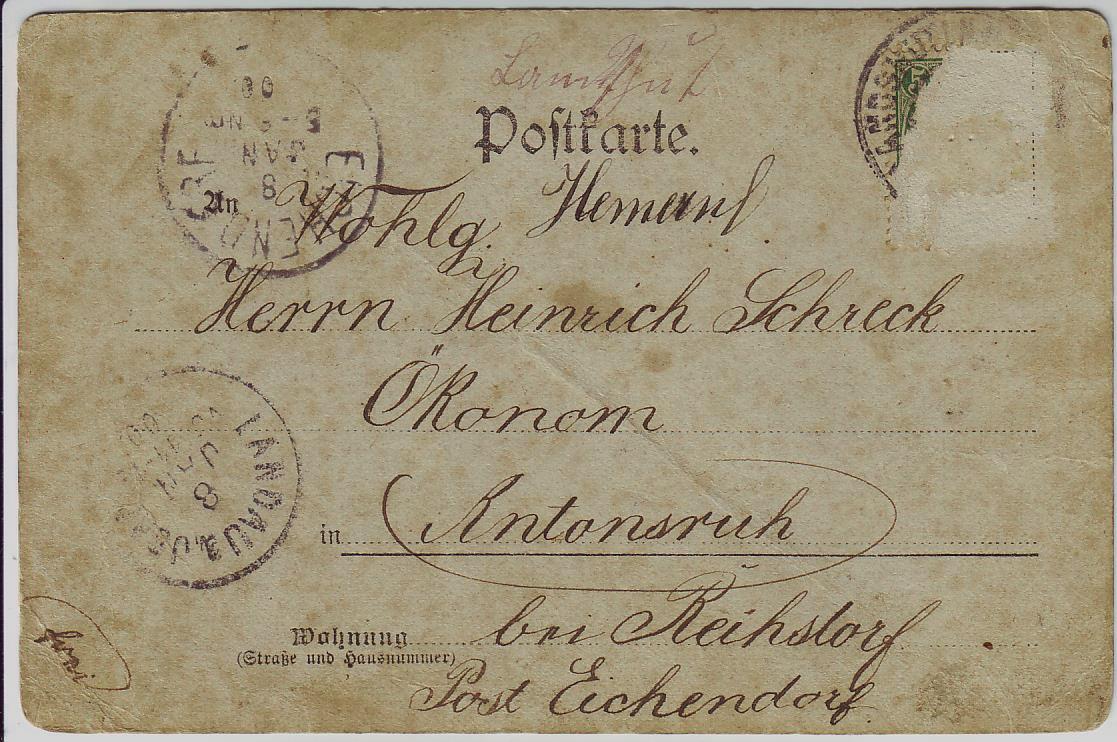 Landshut
Postkarte.
An Wohlg.
Herrn Heinrich Schreck
Ökonom
in Antonsruh
Wohnung bei Reihstorf
(Straße und Hausnummer)
Post Eichendorf
EICHENDORF
8 JAN
00
LANDAU a. ISAR
8 JAN
00